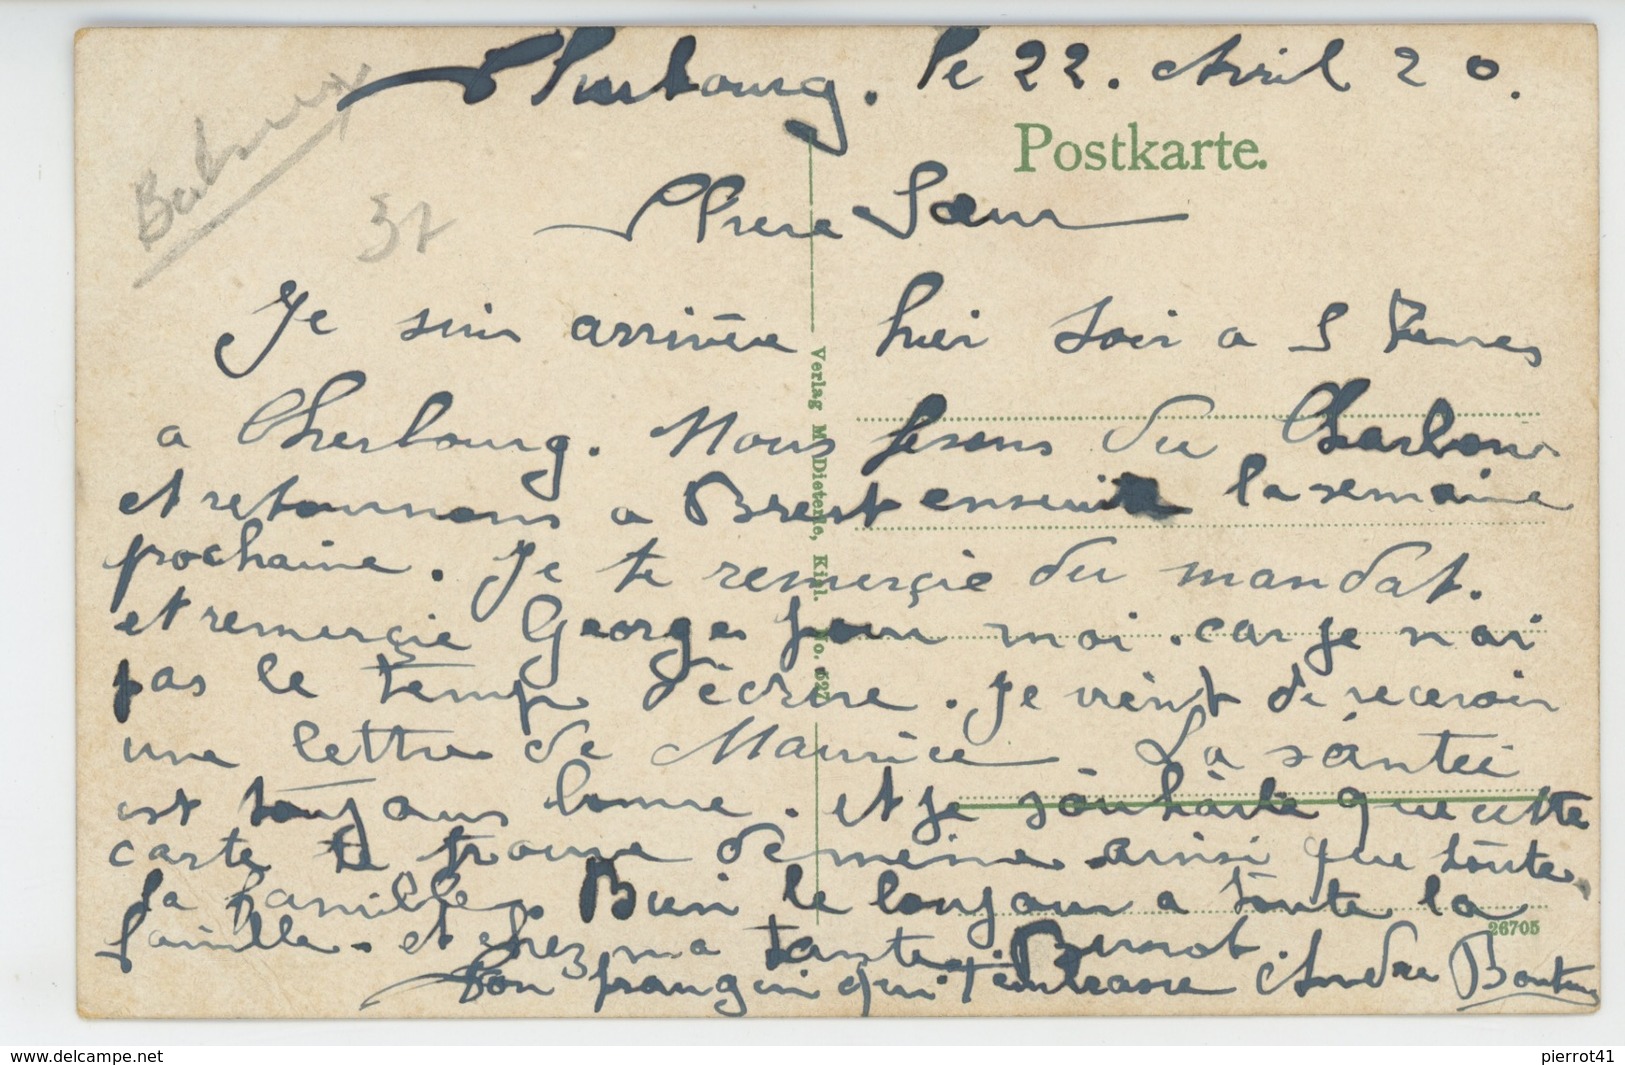 Cherbourg. le 22. Avril 20.
Postkarte.
Bateaux
37
Chere Sœur
Je suis arrivée hier soir a 5 heures
a Cherbourg. Nous fesons du Charbon
et retournons a Brest ensuite la semaine
prochaine. Je te remerçie du mandat.
et remerçie Georges pour moi. car je n ai
pas le temp d'écrire. Je vient de recevoir
une lettre de Maurice La santée
est toujours bonne. et je souhaite que cette
carte te trouve de même ainsi que toute
la famille. Bien le bonjour a toute la
famille. et chez ma tante
Ton frangin qui t'embrasse Andre
Verlag M. Dieterle, Kiel. No. 627
26705
www.delcampe.net
pierrot41